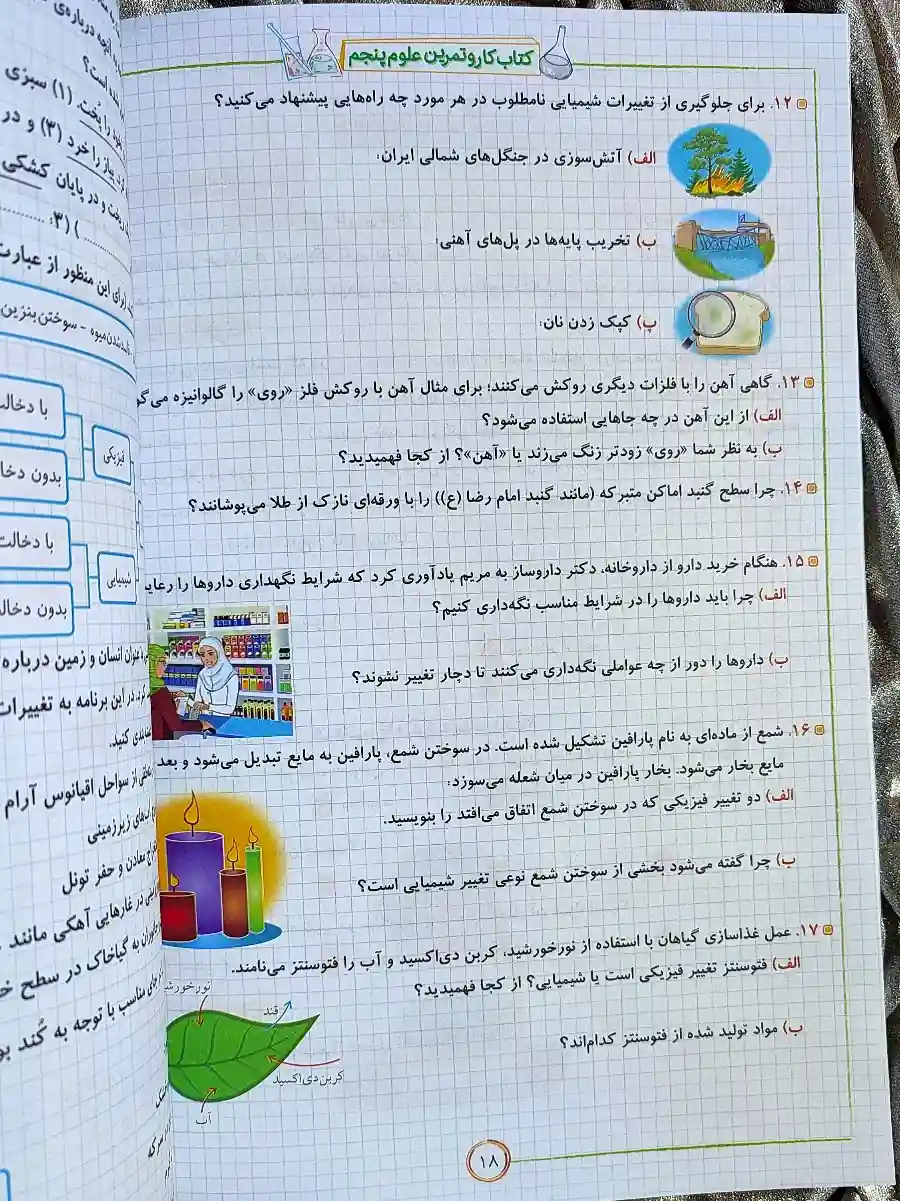 کتاب کار و تمرین علوم پنجم
۱۲. برای جلوگیری از تغییرات شیمیایی نامطلوب در هر مورد چه راه‌هایی پیشنهاد می‌کنید؟
الف) آتش‌سوزی در جنگل‌های شمالی ایران:
ب) تخریب پایه‌ها در پل‌های آهنی:
پ) کپک زدن نان:
۱۳. گاهی آهن را با فلزات دیگری روکش می‌کنند؛ برای مثال آهن با روکش فلز «روی» را گالوانیزه
الف) از این آهن در چه جاهایی استفاده می‌شود؟
ب) به نظر شما «روی» زودتر زنگ می‌زند یا «آهن»؟ از کجا فهمیدید؟
۱۴. چرا سطح گنبد اماکن متبرکه (مانند گنبد امام رضا (ع)) را با ورقه‌ای نازک از طلا می‌پوشانند؟
۱۵. هنگام خرید دارو از داروخانه، دکتر داروساز به مریم یادآوری کرد که شرایط نگهداری داروها را
الف) چرا باید داروها را در شرایط مناسب نگه‌داری کنیم؟
ب) داروها را دور از چه عواملی نگه‌داری می‌کنند تا دچار تغییر نشوند؟
۱۶. شمع از ماده‌ای به نام پارافین تشکیل شده است. در سوختن شمع، پارافین به مایع تبدیل می‌شود و بعد
مایع بخار می‌شود. بخار پارافین در میان شعله می‌سوزد:
الف) دو تغییر فیزیکی که در سوختن شمع اتفاق می‌افتد را بنویسید.
ب) چرا گفته می‌شود بخشی از سوختن شمع نوعی تغییر شیمیایی است؟
۱۷. عمل غذاسازی گیاهان با استفاده از نورخورشید، کربن دی‌اکسید و آب را فتوسنتز می‌نامند.
الف) فتوسنتز تغییر فیزیکی است یا شیمیایی؟ از کجا فهمیدید؟
قند
ب) مواد تولید شده از فتوسنتز کدام‌اند؟
کربن دی‌اکسید
آب
۱۸
(۱) سبزی
را خرد (۳) و در
ریخت و در پایان کشکی
برای این منظور از عبارت
شدن میوه - سوختن بنزین
با
فیزیکی
بدون
با دخالت
شیمیایی
بدون
عنوان انسان و زمین درباره
در این برنامه به تغییرات
بندی کنید.
از سواحل اقیانوس آرام
آب‌های زیرزمینی
معادن و حفر تونل
در غارهایی آهکی مانند
به گیاخاک در سطح
مناسب با توجه به کُند